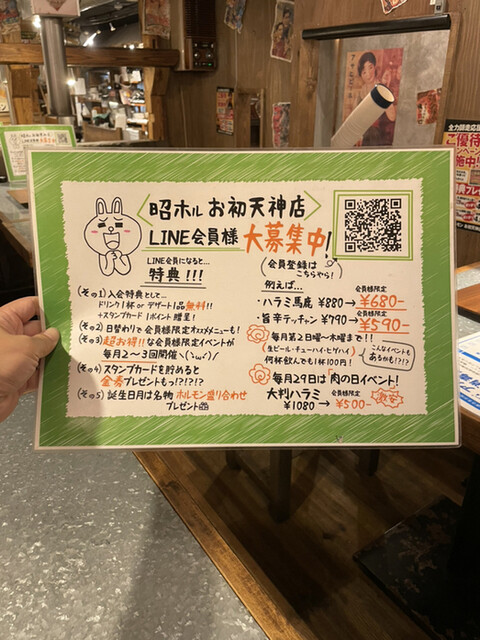 〈昭ホル お初天神店〉
LINE会員様 大募集中!
LINE会員になると…
特典!!!
(その1)入会特典として…
ドリンク1杯 or デザート1品無料!!
+スタンプカード1ポイント贈呈!
(その2)日替わりで会員様限定オススメメニューも!
(その3)超お得!!な会員様限定イベントが
毎月2〜3回開催
(その4)スタンプカードを貯めると
金券プレゼントも!?!?!?
(その5)誕生日月は名物ホルモン盛り合わせ
プレゼント
会員登録は
こちらやら!
例えば…
会員様限定
・ハラミ馬鹿 ¥880→¥680-
会員様限定
・旨辛テッチャン ¥790→¥590-
毎月第2日曜〜木曜まで!!
(生ビール・チューハイ・ハイ)
何杯飲んでも1杯100円!
こんなイベントも
あるかも!?!?
毎月29日は「肉の日イベント!」
大判ハラミ 会員様限定
¥1080→¥500-
激安